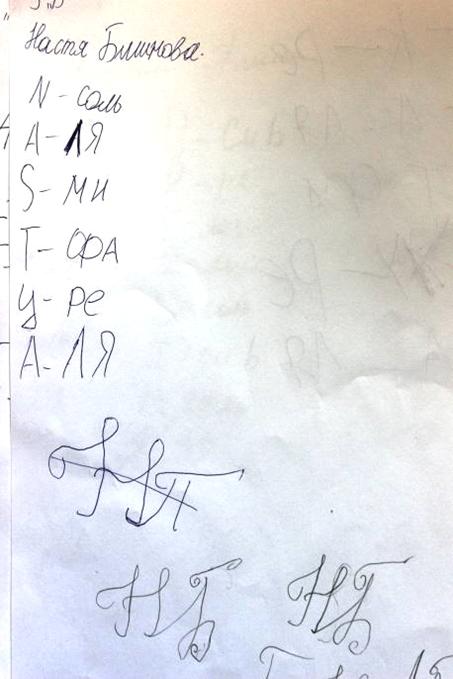 Настя Блинова.
N - соль
A - ЛЯ
S - МИ
T - ФА
Y - РЕ
A - ЛЯ
НП
НБ НБ